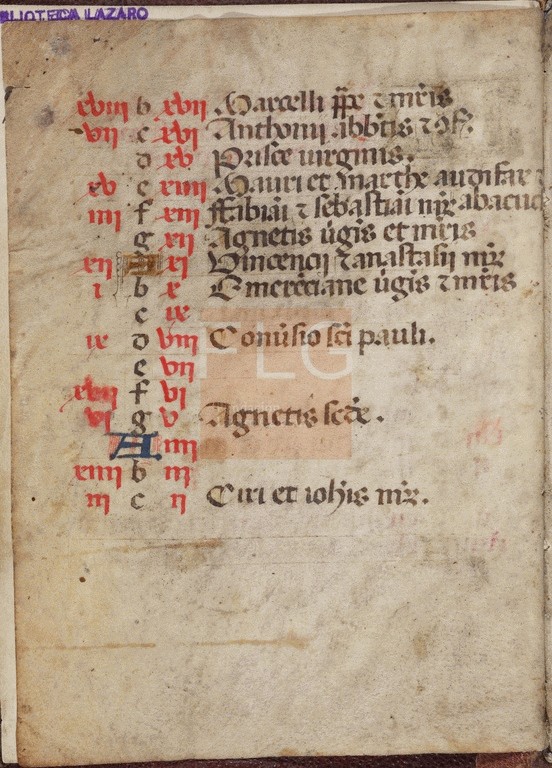 BLIOTECA LAZARO
xviii b xvii Marcelli ppe ⁊ mris
vii c xvi Anthonii abbtis ⁊ ɔf.
d xv Prisce virginis.
xv e xiiii Mauri et marthe audifax ⁊
iiii f xiii ffabiai ⁊ sebastiai mr abacuc
g xii Agnetis ugis et mris
xii A xi Vincencii ⁊ anastasii mr
i b x Emerēciane ugis ⁊ mris
c ix
ix d viii Conusio sci pauli.
e vii
xvii f vi
vi g v Agnetis scde.
A iiii
xiiii b iii
iii c ii Ciri et iohis mr.
FLG